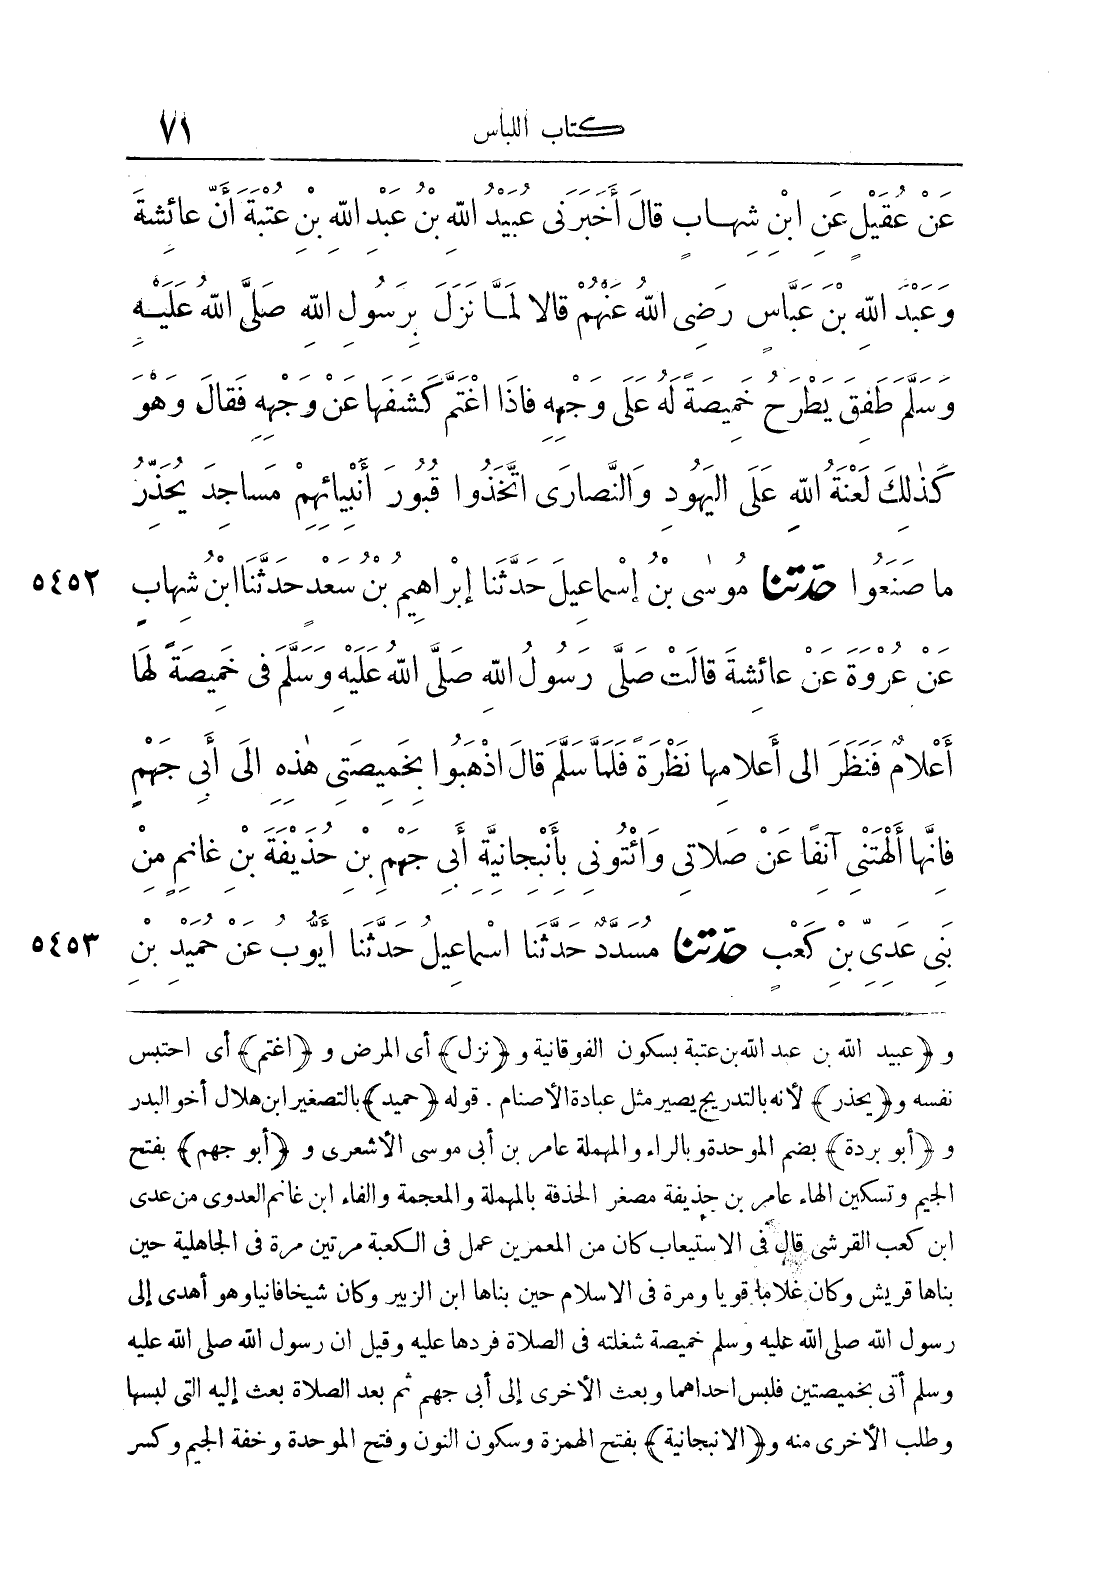 كتاب اللباس ٧١
عَنْ عُقَيْلٍ عَنِ ابْنِ شِهَابٍ قَالَ أَخْبَرَنِى عُبَيْدُ اللهِ بْنُ عَبْدِ اللهِ بْنِ عُتْبَةَ أَنَّ عائِشَةَ
وَعَبْدَ اللهِ بْنَ عَبَّاسٍ رَضِىَ اللهُ عَنْهُمْ قالا لَمَّا نَزَلَ بِرَسُولِ اللهِ صَلَّى اللهُ عَلَيْهِ
وَسَلَّمَ طَفِقَ يَطْرَحُ خَمِيصَةً لَهُ عَلَى وَجْهِهِ فاذَا اغْتَمَّ كَشَفَها عَنْ وَجْهِهِ فَقالَ وَهْوَ
كَذٰلِكَ لَعْنَةُ اللهِ عَلَى اليَهُودِ وَالنَّصارَى اتَّخَذُوا قُبُورَ أَنْبِيائِهِمْ مَساجِدَ يُحَذِّرُ
ما صَنَعُوا حَدَّثَنَا مُوسٰى بْنُ إسْماعِيلَ حَدَّثَنا إبْراهِيمُ بْنُ سَعْدٍ حَدَّثَنَا ابْنُ شِهابٍ ٥٤٥٢
عَنْ عُرْوَةَ عَنْ عائِشَةَ قالَتْ صَلَّى رَسُولُ اللهِ صَلَّى اللهُ عَلَيْهِ وَسَلَّمَ فى خَمِيصَةٍ لَها
أَعْلامٌ فَنَظَرَ الى أَعْلامِها نَظْرَةً فَلَمَّا سَلَّمَ قالَ اذْهَبُوا بِخَمِيصَتِى هٰذِهِ الَى أَبِى جَهْمٍ
فانَّها أَلْهَتْنِى آنِفًا عَنْ صَلاتِى وَائْتُونِى بِأَنْبِجانِيَّةِ أَبِى جَهْمِ بْنِ حُذَيْفَةَ بْنِ غانِمٍ مِنْ
بَنِى عَدِىِّ بْنِ كَعْبٍ حَدَّثَنَا مُسَدَّدٌ حَدَّثَنَا اسْماعِيلُ حَدَّثَنَا أَيُّوبُ عَنْ حُمَيْدِ بْنِ ٥٤٥٣
و ﴿عبيد الله بن عبد الله بن عتبة بسكون الفوقانية و ﴿نزل﴾ أى المرض و ﴿اغتم﴾ أى احتبس
نفسه و ﴿يحذر﴾ لأنه بالتدريج يصير مثل عبادة الأصنام . قوله ﴿حميد﴾ بالتصغير ابن هلال أخو البدر
و ﴿أبو بردة﴾ بضم الموحدة وبالراء والمهملة عامر بن أبى موسى الأشعرى و ﴿أبو جهم﴾ بفتح
الجيم وتسكين الهاء عامر بن حذيفة مصغر الحذفة بالمهملة والمعجمة والفاء ابن غانم العدوى من عدى
ابن كعب القرشى قال فى الاستيعاب كان من المعمرين عمل فى الكعبة مرتين مرة فى الجاهلية حين
بناها قريش وكان غلاما قويا ومرة فى الاسلام حين بناها ابن الزبير وكان شيخا فانيا وهو أهدى إلى
رسول الله صلى الله عليه وسلم خميصة شغلته فى الصلاة فردها عليه وقيل ان رسول الله صلى الله عليه
وسلم أتى بخميصتين فلبس احداهما وبعث الأخرى إلى أبى جهم ثم بعد الصلاة بعث إليه التى لبسها
وطلب الأخرى منه و ﴿الانبجانية﴾ بفتح الهمزة وسكون النون وفتح الموحدة وخفة الجيم وكسر